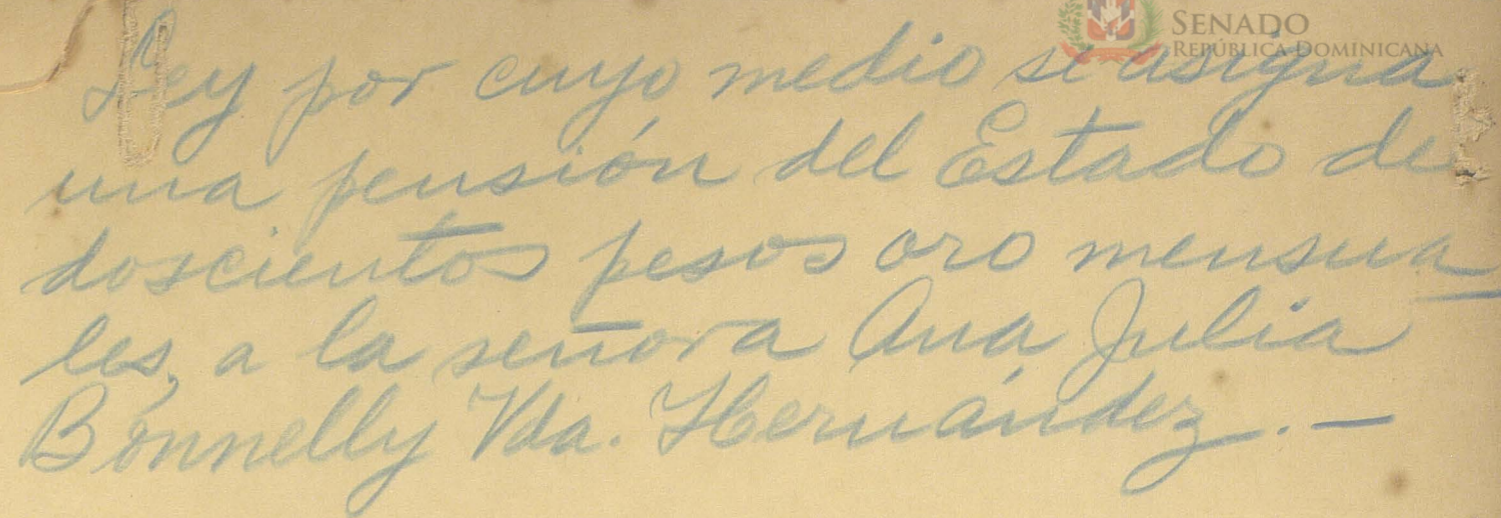 SENADO
REPÚBLICA DOMINICANA
Ley por cuyo medio se asigna
una pensión del Estado de
doscientos pesos oro mensua
les, a la señora Ana Julia
Bonnelly Vda. Hernández.—